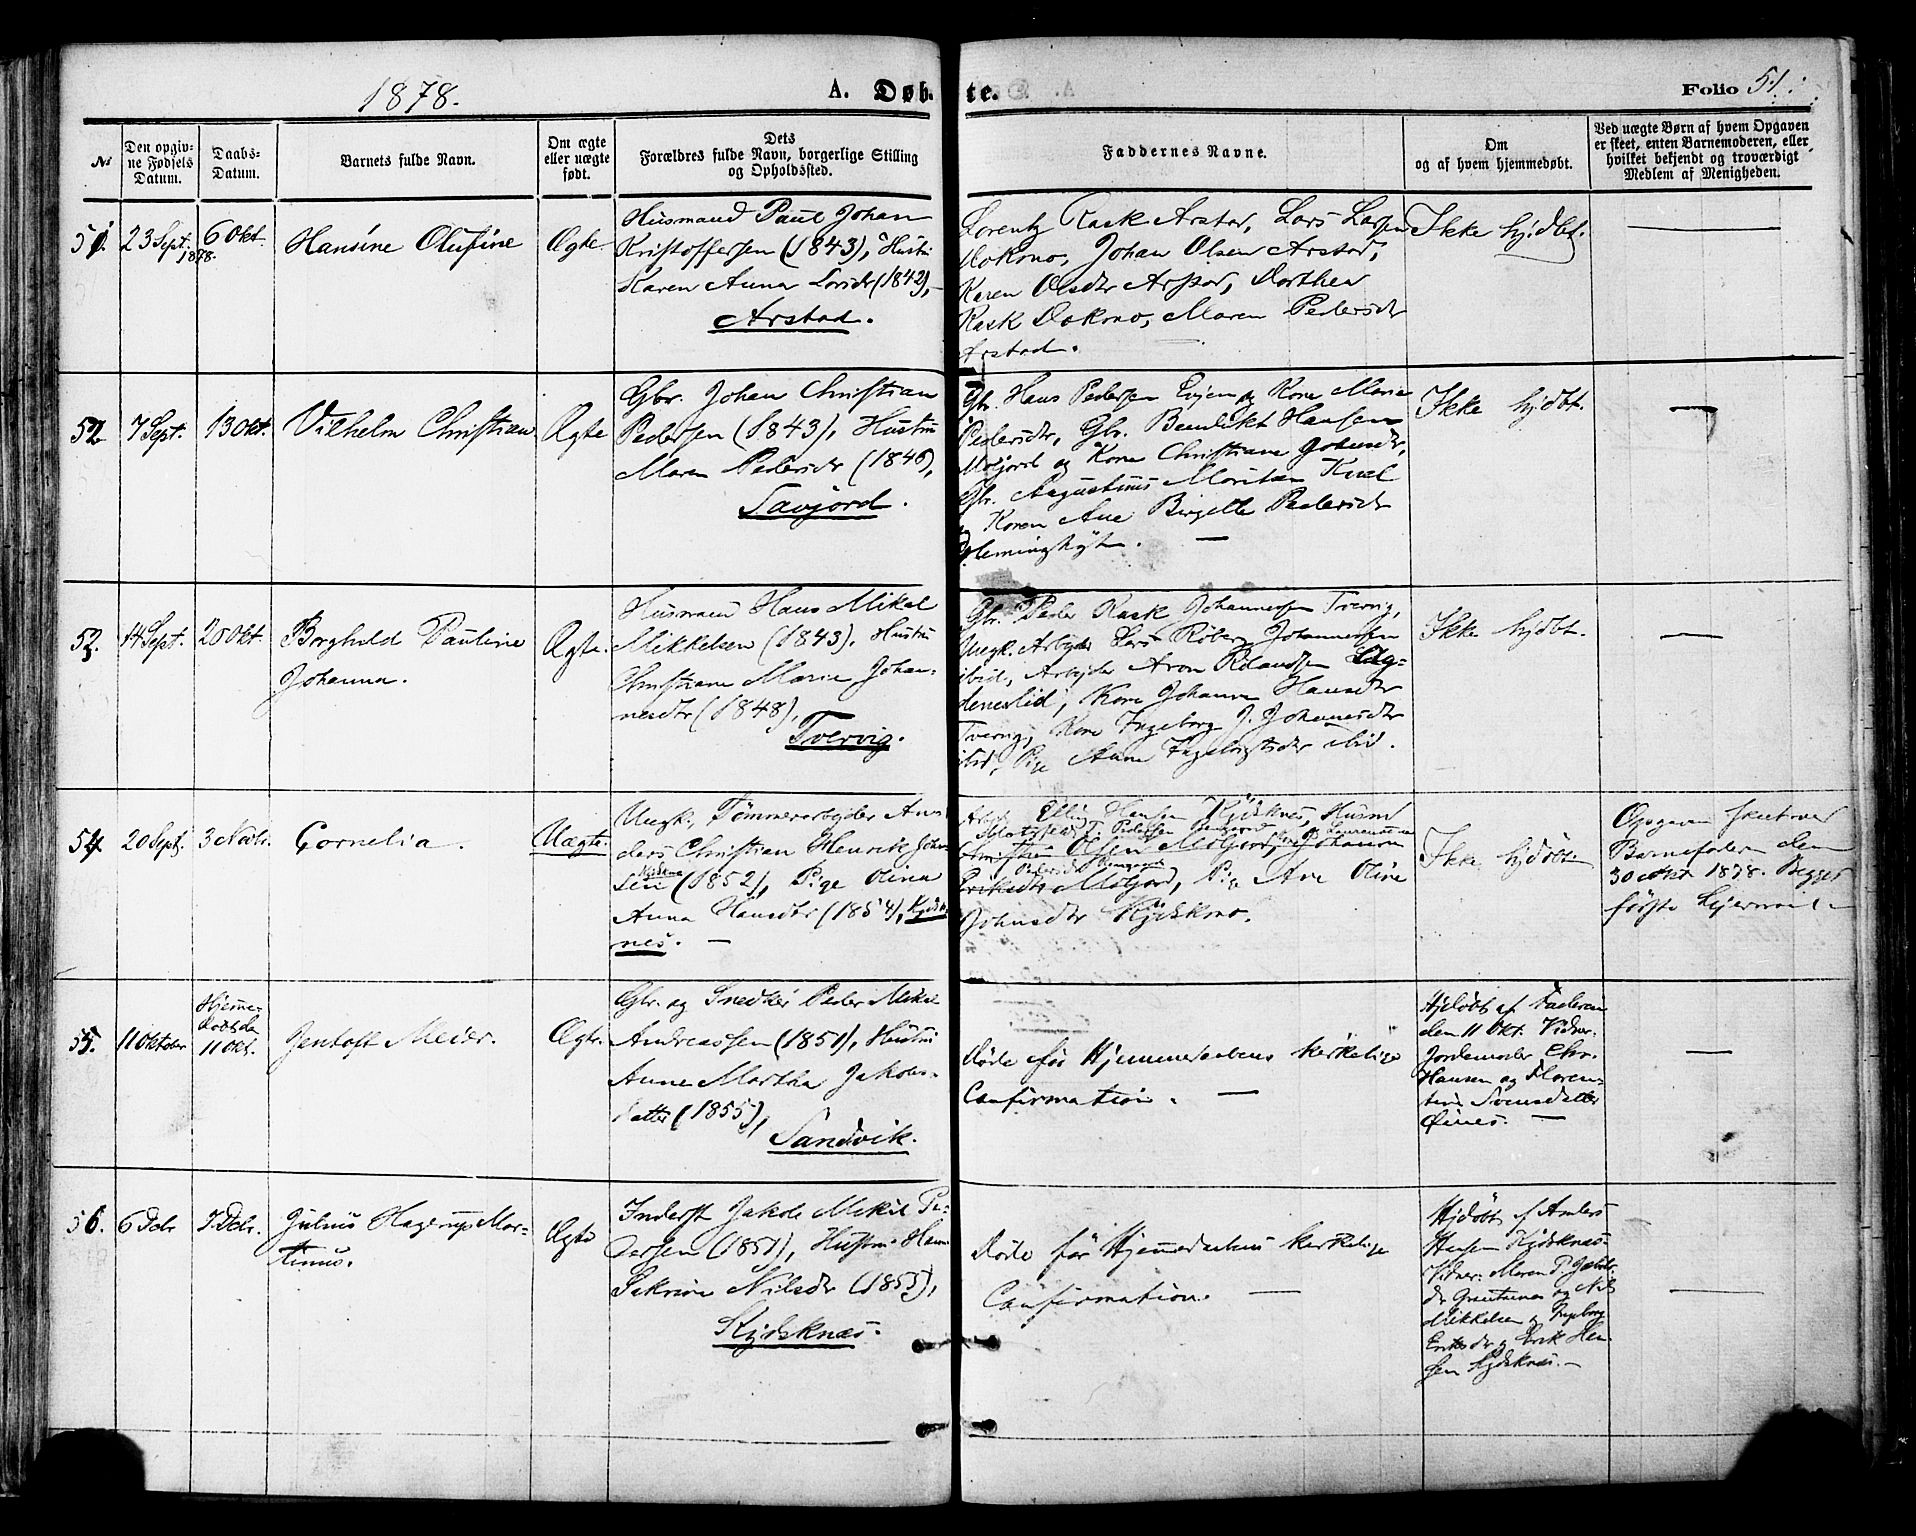 1878.
A. Døb-
te.
Folio 51.
№
Den opgiv-
ne Fødsels
Datum.
Daabs-
Datum.
Barnets fulde Navn.
Om ægte
eller uægte
født.
Dets
Forældres fulde Navn, borgerlige Stilling
og Opholdssted.
Faddernes Navne.
Om
og af hvem hjemmedøbt.
Ved uægte Børn af hvem Opgaven
er skeet, enten Barnemoderen, eller
hvilket bekjendt og troværdigt
Medlem af Menigheden.
51.
23 Sept.
1878.
6 Okt.
Hansine Olufine
Ægte
Husmand Paul Johan
Kristoffersen (1843), Hustru
Karen Anna Larsdr (1842),
Arstad.
Lorentz Rask Arstad, Lars Larsen
Mokono, Johan Olsen Arstad,
Karen Olsdtr Arstad, Dorthea
Rask Mokono, Maren Pedersdr
Arstad.
Ikke hjdbt.
52.
7 Sept.
13 Okt.
Vilhelm Christian
Ægte
Gbr. Johan Christian
Pedersen (1843), Hustru
Maren Pedersdr (1846),
Savjord.
Gbr. Hans Pedersen Evjen og Kone Maria
Pedersdtr, Gbr. Benedikt Hansen
Misjord og Kone Christiane Johnsdtr,
Gbr. Augustinus Moritsen
Karen Ane Birgitte Pedersdr
Ikke hjdbt.
53.
14 Sept.
20 Okt.
Borghild Pauline
Johanna.
Ægte.
Husmand Hans Mikal
Mikkelsen (1843), Hustru
Christiane Marie Johan-
nesdtr (1848),
Tvervig.
Gbr. Peder Rask Johannesen Tvervig,
Ungk. Arbejder Lars Røberg Johannesen
ibid, Arbejder Aron Rolandsen Ag-
deneslid, Kone Johanna Hansdtr
Tvervig, Kone Ingeborg J. Johannesdtr
ibid, Pige Anna Ingebrigtsdtr ibid.
Ikke hjdbt.
54.
20 Sept.
3 Novbr.
Cornelia.
Uægte.
Ungk., Tømmerarbejder An-
ders Christian Henrik John-
sen (1852), Pige Olina
Anna Hansdtr (1854), Kjøds-
nes.
Arb. Elling Hansen Kjødsknes, Husm
Christian Olsen Misjord, Johanna
Eriksdtr Misjord, Pige Ane Oline
Johnsdtr Kjødskmo.
Ikke hjdøbt.
Opgaven skeet ved
Barnefaderen den
30 Okt. 1878. Begges
første Lejermaal.
55.
11 Oktober
Hjemme-
døbt de
11 Okt.
Jentoft Meier.
Ægte.
Gbr. og Snedker Peder Mikal
Andreassen (1850), Hustru
Anne Martha Jakobs-
datter (1855),
Sandvik.
Døde før Hjemmedaabens kirkelige
Confirmation.
Hjdøbt af Faderen
den 11 Okt. Vidner:
Jordemoder Chr.
Hansen og Floren-
tine Svensdatter
Øines.
56.
6 Dcbr
7 Dcbr.
Julius Hagerup Mar-
tinus.
Ægte
Inderst Jakob Mikal Pe-
dersen (1851), Hustru Hanna
Sakrine Nilsdr (1853),
Kjødsknæs.
Døde før Hjemmedaabens kirkelige
Confirmation.
Hjdøbt af Anders
Hansen Kjødsknæs.
Vidner: Maren P. Jakobs-
dr og Nils
Mikkelsen og Ingeborg
Eriksdr og Erik Han-
sen Kjødsknæs.